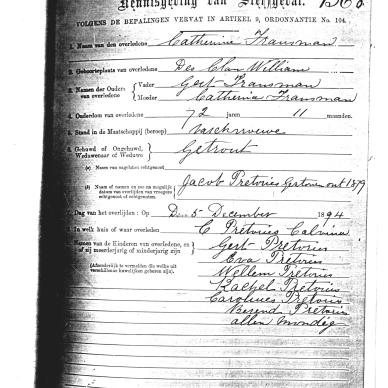 Kennisgeving van Sterfgeval. 
VOLGENS DE BEPALINGEN VERVAT IN ARTIKEL 9, ORDONNANTIE No. 104.
1. Naam van den overledene Catherina Fransman
2. Geboorteplaats van overledene Des Clan William
3. Namen der Ouders van overledene { Vader Gert Fransman
Moeder Catherina Fransman
4. Ouderdom van overledene 72 jaren 11 maanden.
5. Stand in de Maatschappij (beroep)
6. Gehuwd of Ongehuwd, Weduwenaar of Weduwe Getrout
(a) Naam van nagelaten echtgenoot
(b) Naam of namen en zoo na mogelijk datum van overlijden van vroegere echtgenoot of echtgenooten Jacob Pretories 1879
7. Dag van het overlijden: Op Den 5 December 1894
8. In welk huis of waar overleden C Pretories Calvinia
9. Namen der Kinderen van overledene, en of zij meerderjarig of minderjarig zijn Gert Pretories
Eva Pretories
(Afzonderlijk te vermelden die welke uit verschillende huwelijken geboren zijn). Wellem Pretories
Rachel Pretories
Pretories
Berend Pretories
allen mondig